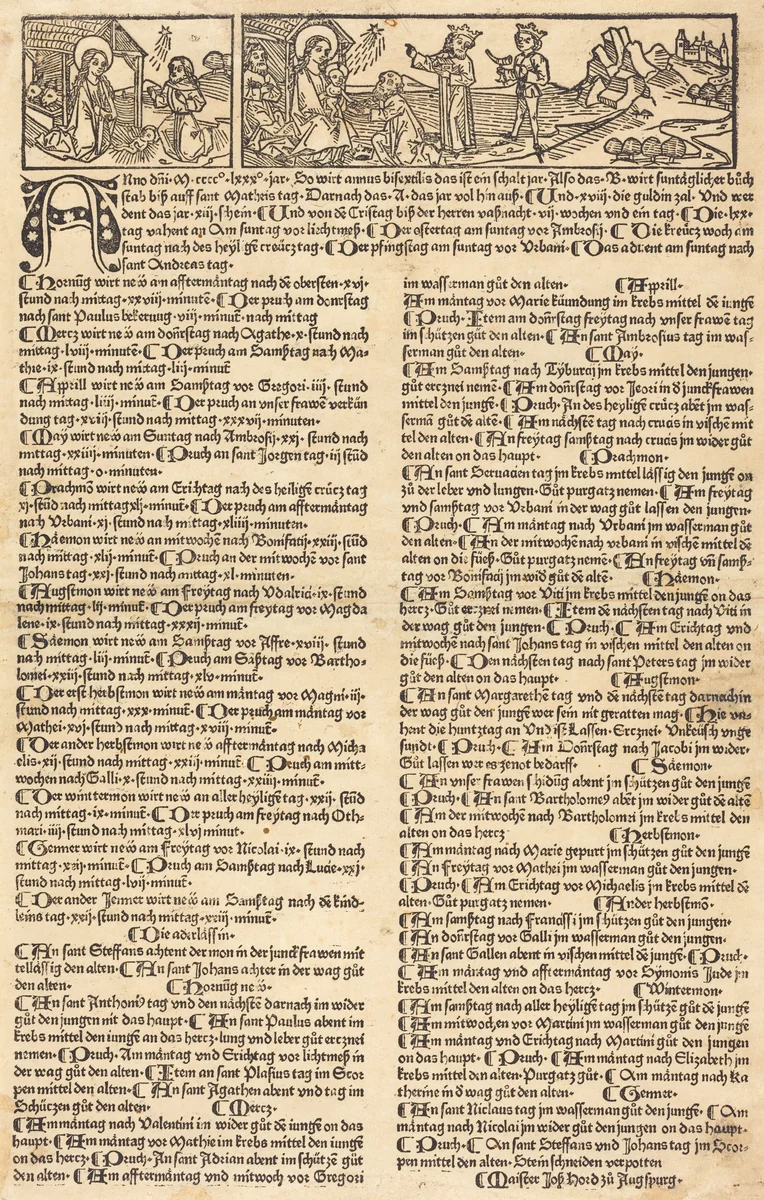 Nno dñi·M·ccccº·lxxxº·jar· So wirt annus bisextilis das ist ein schalt jar· Also das·B·wirt suntäglicher bůch
stab biß auff sant Matheis tag·Darnach das·A·das jar vol hin auß·Und·xviii·die guldin zal·Vnd wer
dent das jar·xiij·schein·Und von dē Cristag biß der herren vaßnacht·vij·wochen und ein tag·Die·lxx·
tag vahent an Am suntag vor liechtmeß·Der ostertag am suntag vor Ambrosij·Die kreücz woch am
suntag nach des heyligē creücz tag·Der pfingstag am suntag vor Urbani·Das aduent am suntag nach
sant Andreas tag·
Hornũg wirt new an afftermäntag nach dē obersten·xvj·
stund nach mittag·xxviij·minutē·Der pruch am donrstag
nach sant Paulus bekerung·viij·minut̃·nach mittag
Mercz wirt new am doñrstag nach Agathe·x·stund nach
mittag·lviij·minutē·Der pruch am Samßtag nach Ma-
thie·ix·stund nach mittag·lij·minut̃
Apprill wirt new am Samßtag vor Gregori·iiij·stund
nach mittag·liiij·minut̃·Der pruch an vnser frawē verkün
dung tag·xviij·stund nach mittag·xxxvij·minuten·
May wirt new am Suntag nach Ambrosij·xxj·stund nach
mittag·xxiiij·minuten·Pruch an sant Jorgen tag·iij stūd
nach mittag·o·minuten·
Prachmon wirt new am Erichtag nach des heiligē crücz tag
xj·stūd nach mittag xlj·minut̃·Der pruch am afftermäntag
nach Vrbani·xj·stund nach mittag·xliiij·minuten·
Häemon wirt new an mitwochē nach Bonifatij·xxiij·stūd
nach mittag·xlij·minut̃·Pruch an der mitwochē vor sant
Johans tag·xxj·stund nach mittag·xl·minuten·
Augstmon wirt new am Freytag nach Vdalrici·ix·stund
nach mittag·lij·minut̃·Der pruch am freytag vor Magda
lene·ix·stund nach mittag·xxxij·minut̃·
Säemon wirt new am Samßtag vor Affre·xviij·stund
nach mittag·liij·minut̃·Pruch am Säßtag vor Bartho-
lomei·xxiij·stund nach mittag·xlv·minut̃·
Der erst herbstmon wirt new am mäntag vor Magni·iij·
stund nach mittag·xxx·minut̃·Der pruch am mäntag vor
Mathei·xvj·stund nach mittag·xviij·minut̃·
Der ander herbstmon wirt new afftermäntag nach Micha
elis·xij·stund nach mittag·xxij·minut̃·Pruch am mitt-
wochen nach Galli·x·stund nach mittag·xxiiij·minut̃·
Der wintermon wirt new an aller heyligē tag·xxij·stūd
nach mittag·ix·minut̃·Der pruch am freytag nach Oth-
mari·iij·stund nach mittag·xlvj minut·
Genner wirt new am Freytag vor Nicolai·ix·stund nach
mittag·xxij·minut̃·Pruch am Samßtag nach Lucie·xxj
stund nach mittag·lvij·minut̃·
Der ander Jenner wirt new am Samßtag nach dē kind-
leins tag·xxij·stund nach mittag·xxiij·minut̃·
Die aderlässin·
An sant Steffans achtent der mon in der junckfrawen mit
tellässig den alten·An sant Johans achter in der wag gůt
den alten·Hornũg new·
An sant Anthonij tag und den nächstē darnach im wider
gůt den jungen nit das haupt·An sant Paulus abent im
krebs mittel den iungē an das hercz·lung vnd leber gůt ercznei
nemen·Pruch·Am mäntag vnd Erichtag vor lichtmeß in
der wag gůt den alten·Item an sant Plasius tag im Scor
pen mittel den alten·An sant Agathen abent vnd tag im
Schüczen gůt den alten·Mercz·
Am mäntag nach Valentini in wider gůt dē iungē on das
haupt·Am mäntag vor Mathie im krebs mittel den iungē
on das hercz·Pruch·An sant Adrian abent im schüczē gůt
den alten·Am afftermäntag vnd mitwoch vor Gregori
im wasserman gůt den alten·Apprill·
Am mäntag vor Marie kündung im krebs mittel dē iungē
Pruch·Item am doñrstag freytag nach vnser frawen tag
im schützen gůt den alten·An sant Ambrosius tag im was-
serman gůt den alten·May·
Am Samßtag nach Tyburcij im krebs mittel den jungen·
gůt ercznei nemē·Am doñrstag vor Jeori in d̄ junckfrawen
mittel den jungē·Pruch·An des heyligē crücz abēt im was-
sermā gůt dē alten·Am nächstē tag nach crucis in vischē mit
tel den alten·An freytag samßtag nach crucis im wider gůt
den alten on das haupt·Prachmon·
An sant Seruacien tag im krebs mittel lässig den jungē on
zů der leber und lungen·Gůt purgatz nemen·Am freytag
vnd samßtag vor Vrbani in der wag gůt lassen den jungen·
Pruch·Am mäntag nach Vrbani im wasserman gůt
den alten·An der mitwochē nach vrbani in vischē mittel dē
alten on die fueß·Gůt purgatz nemē·An freytag vñ samß-
tag vor Bonifacij im wid̄ gůt dē altē·Häemon·
Am Samßtag vor Viti im krebs mittel den jungē on das
hercz·Gůt ercznei nemen·Item dē nächsten tag nach Viti in
der wag gůt den jungen·Pruch·Am Erichtag vnd
mitwochē nach sant Johans tag in vischen mittel den alten on
die füeß·Den nächsten tag nach sant Peters tag im wider
gůt den alten on das haupt·Augstmon·
An sant Margarethē tag vnd dē nächstē tag darnach in
der wag gůt den jungē wer sein nit geratten mag·Hie va-
hent die hunztag an Vnd ist Lassen·Ercznei·Vnkeüsch vnge
sundt·Pruch·Am Doñrstag nach Jacobi im wider·
Gůt lassen wer es ze not bedarff·Säemon·
An vnser frawen schidūg abent im schützen gůt den jungē
Pruch·An sant Bartholomeꝰ abēt im wider gůt dē altē
Am der mittwoch nach Bartholomei im krebs mittel den
alten on das hercz Herbstmon·
Am mäntag nach Marie gepurt im schützen gůt den jungē
An Freytag vor Mathei im wasserman gůt den jungen·
Pruch·Am Erichtag vor Michaelis im krebs mittel dē
alten·Gůt purgatz nemen·Ander herbstmō·
Am samßtag nach Francisci im schützen gůt den jungen·
An doñrstag vor Galli im wasserman gůt den jungen·
An sant Gallen abent in vischen mittel dē jungen·Pruch·
Am mäntag vnd afftermäntag vor Symonis Jude im
krebs mittel den alten on das hercz·Wintermon·
Am samßtag nach aller heyligē tag im schützē gůt dē jungē
Am mitwochen vor Martini im wasserman gůt den jungē
Am mäntag vnd Erichtag nach Martini gůt den jungen
on das haupt·Pruch·Am mäntag nach Elizabeth im
krebs mittel den alten·Purgatz gůt·Am mäntag nach Ka
therine in d̄ wag gůt den alten·Genner·
An sant Niclaus tag im wasserman gůt den jungē·Am
mäntag nach Nicolai im wider gůt den jungen on das haupt·
Pruch·An sant Steffans vnd Johans tag im Scor-
pen mittel den alten·Stein schneiden verpotten
Maister Joß Hord zů Augspurg·